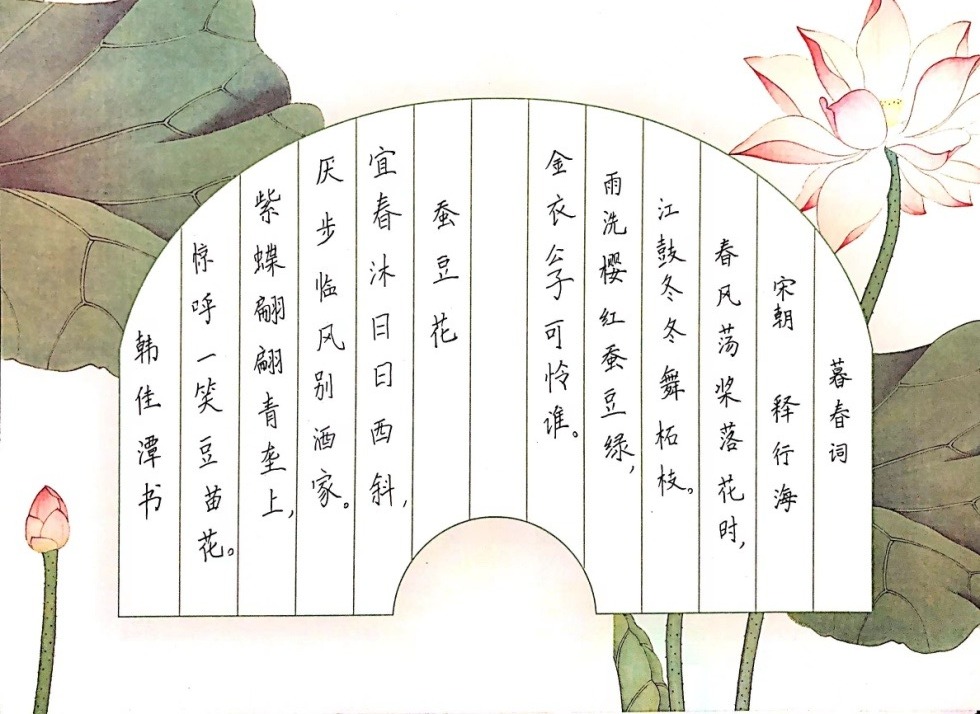 暮春词
宋朝 释行海
春风荡桨落花时,
江鼓冬冬舞柘枝。
雨洗樱红蚕豆绿,
金衣公子可怜谁。
蚕豆花
宜春沐日日西斜,
厌步临风别酒家。
紫蝶翩翩青垄上,
惊呼一笑豆苗花。
韩佳潭书